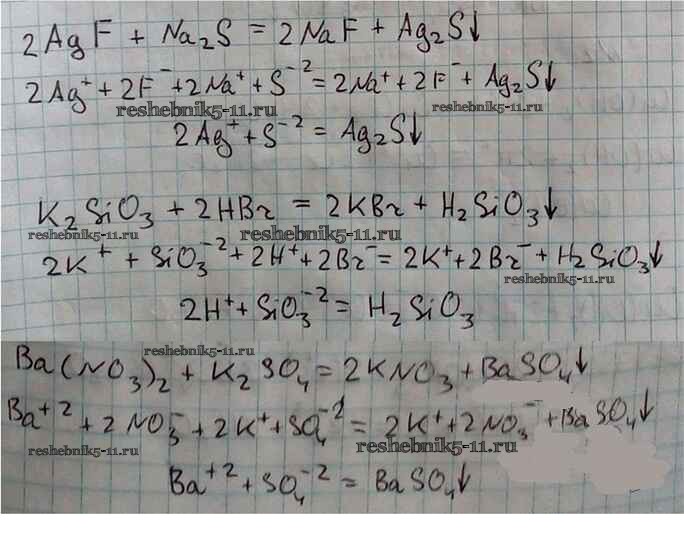 2AgF + Na₂S = 2NaF + Ag₂S↓
2Ag⁺ + 2F⁻ + 2Na⁺ + S⁻² = 2Na⁺ + 2F⁻ + Ag₂S↓
reshebnik5-11.ru reshebnik5-11.ru
2Ag⁺ + S⁻² = Ag₂S↓
K₂SiO₃ + 2HBr = 2KBr + H₂SiO₃↓
reshebnik5-11.ru reshebnik5-11.ru
2K⁺ + SiO₃⁻² + 2H⁺ + 2Br⁻ = 2K⁺ + 2Br⁻ + H₂SiO₃↓
reshebnik5-11.ru
2H⁺ + SiO₃⁻² = H₂SiO₃
reshebnik5-11.ru
Ba(NO₃)₂ + K₂SO₄ = 2KNO₃ + BaSO₄↓
Ba⁺² + 2NO₃⁻ + 2K⁺ + SO₄⁻² = 2K⁺ + 2NO₃⁻ + BaSO₄↓
reshebnik5-11.ru reshebnik5-11.ru
Ba⁺² + SO₄⁻² = BaSO₄↓